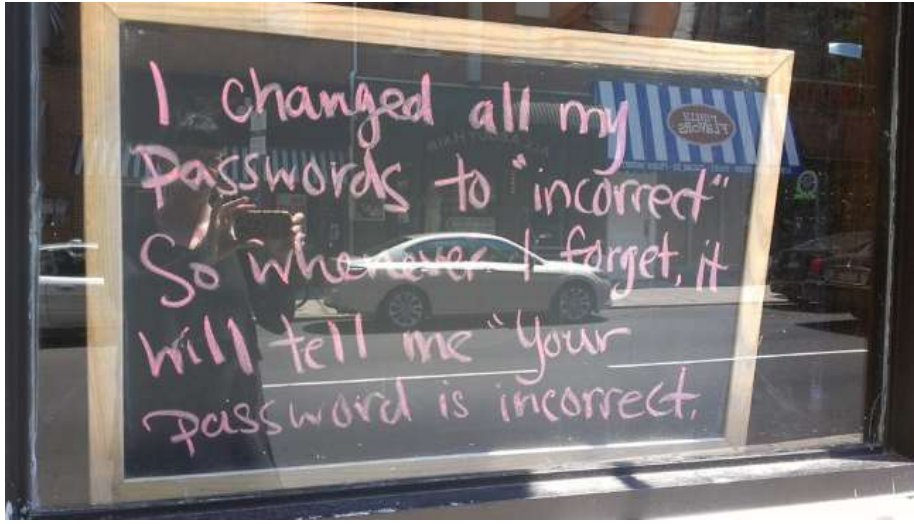 I changed all my
passwords to "incorrect"
So whenever I forget, it
will tell me "Your
password is incorrect.
FLAVORS